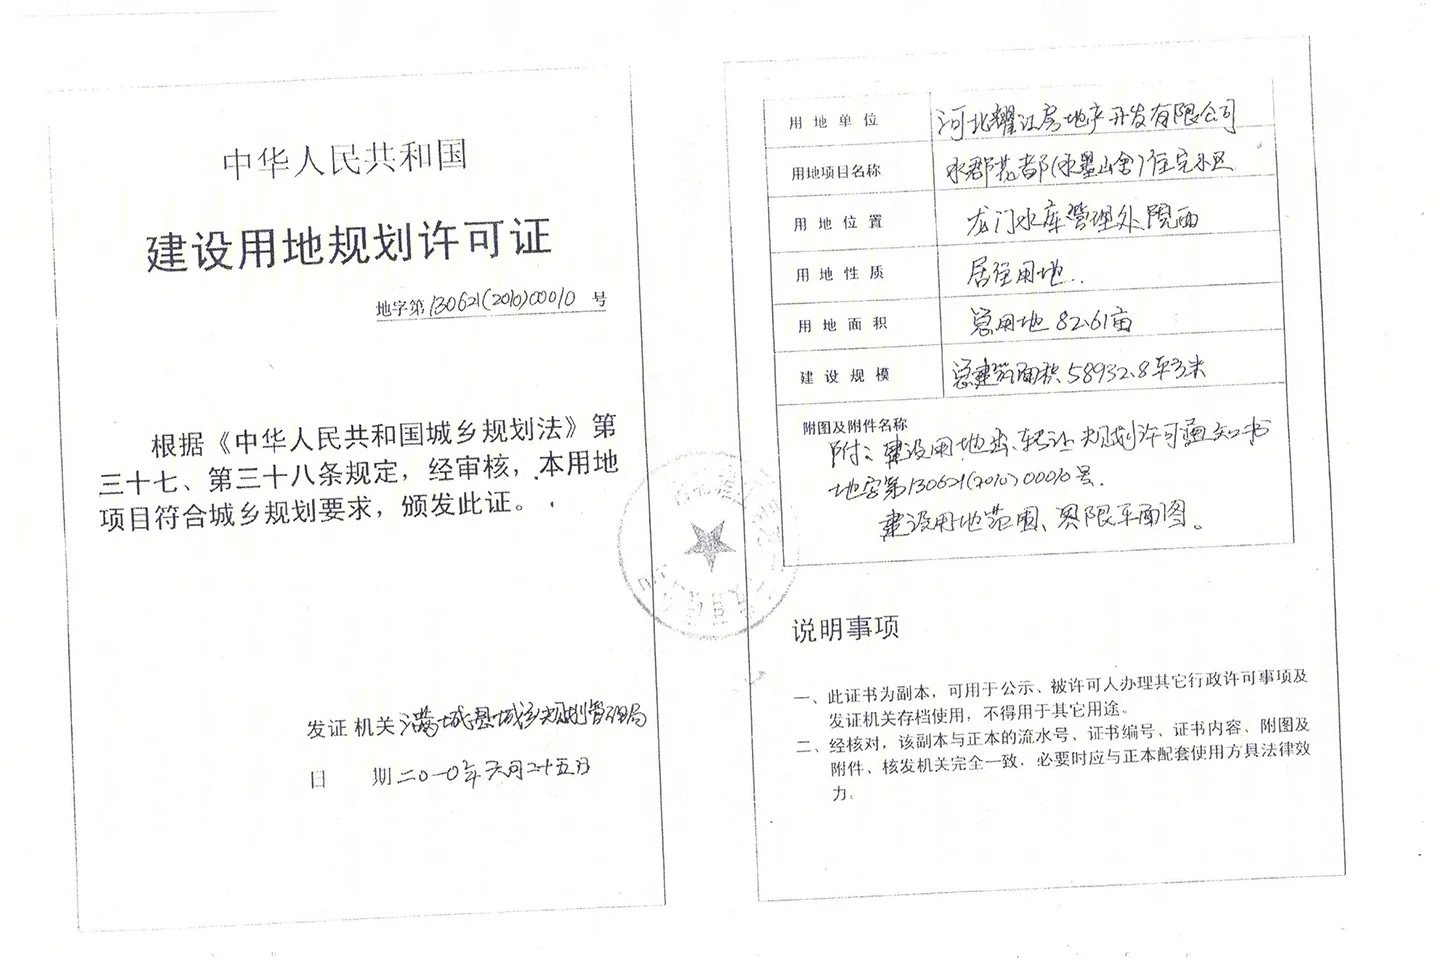 中华人民共和国
建设用地规划许可证
地字第130621(2010)00010号
根据《中华人民共和国城乡规划法》第
三十七、第三十八条规定，经审核，本用地
项目符合城乡规划要求，颁发此证。
发证机关 满城县城乡规划管理局
日期 二0一0年六月二十五日
用地单位 河北耀江房地产开发有限公司
用地项目名称 水郡花都(水墨山舍)住宅小区
用地位置 龙门水库管理处院西
用地性质 居住用地
用地面积 总用地82.61亩
建设规模 总建筑面积58932.8平方米
附图及附件名称
附：建设用地出、转让规划许可通知书
地字第130621(2010)00010号.
建设用地范围、界限平面图。
说明事项
一、此证书为副本，可用于公示、被许可人办理其它行政许可事项及
发证机关存档使用，不得用于其它用途。
二、经核对，该副本与正本的流水号、证书编号、证书内容、附图及
附件、核发机关完全一致，必要时应与正本配套使用方具法律效
力。